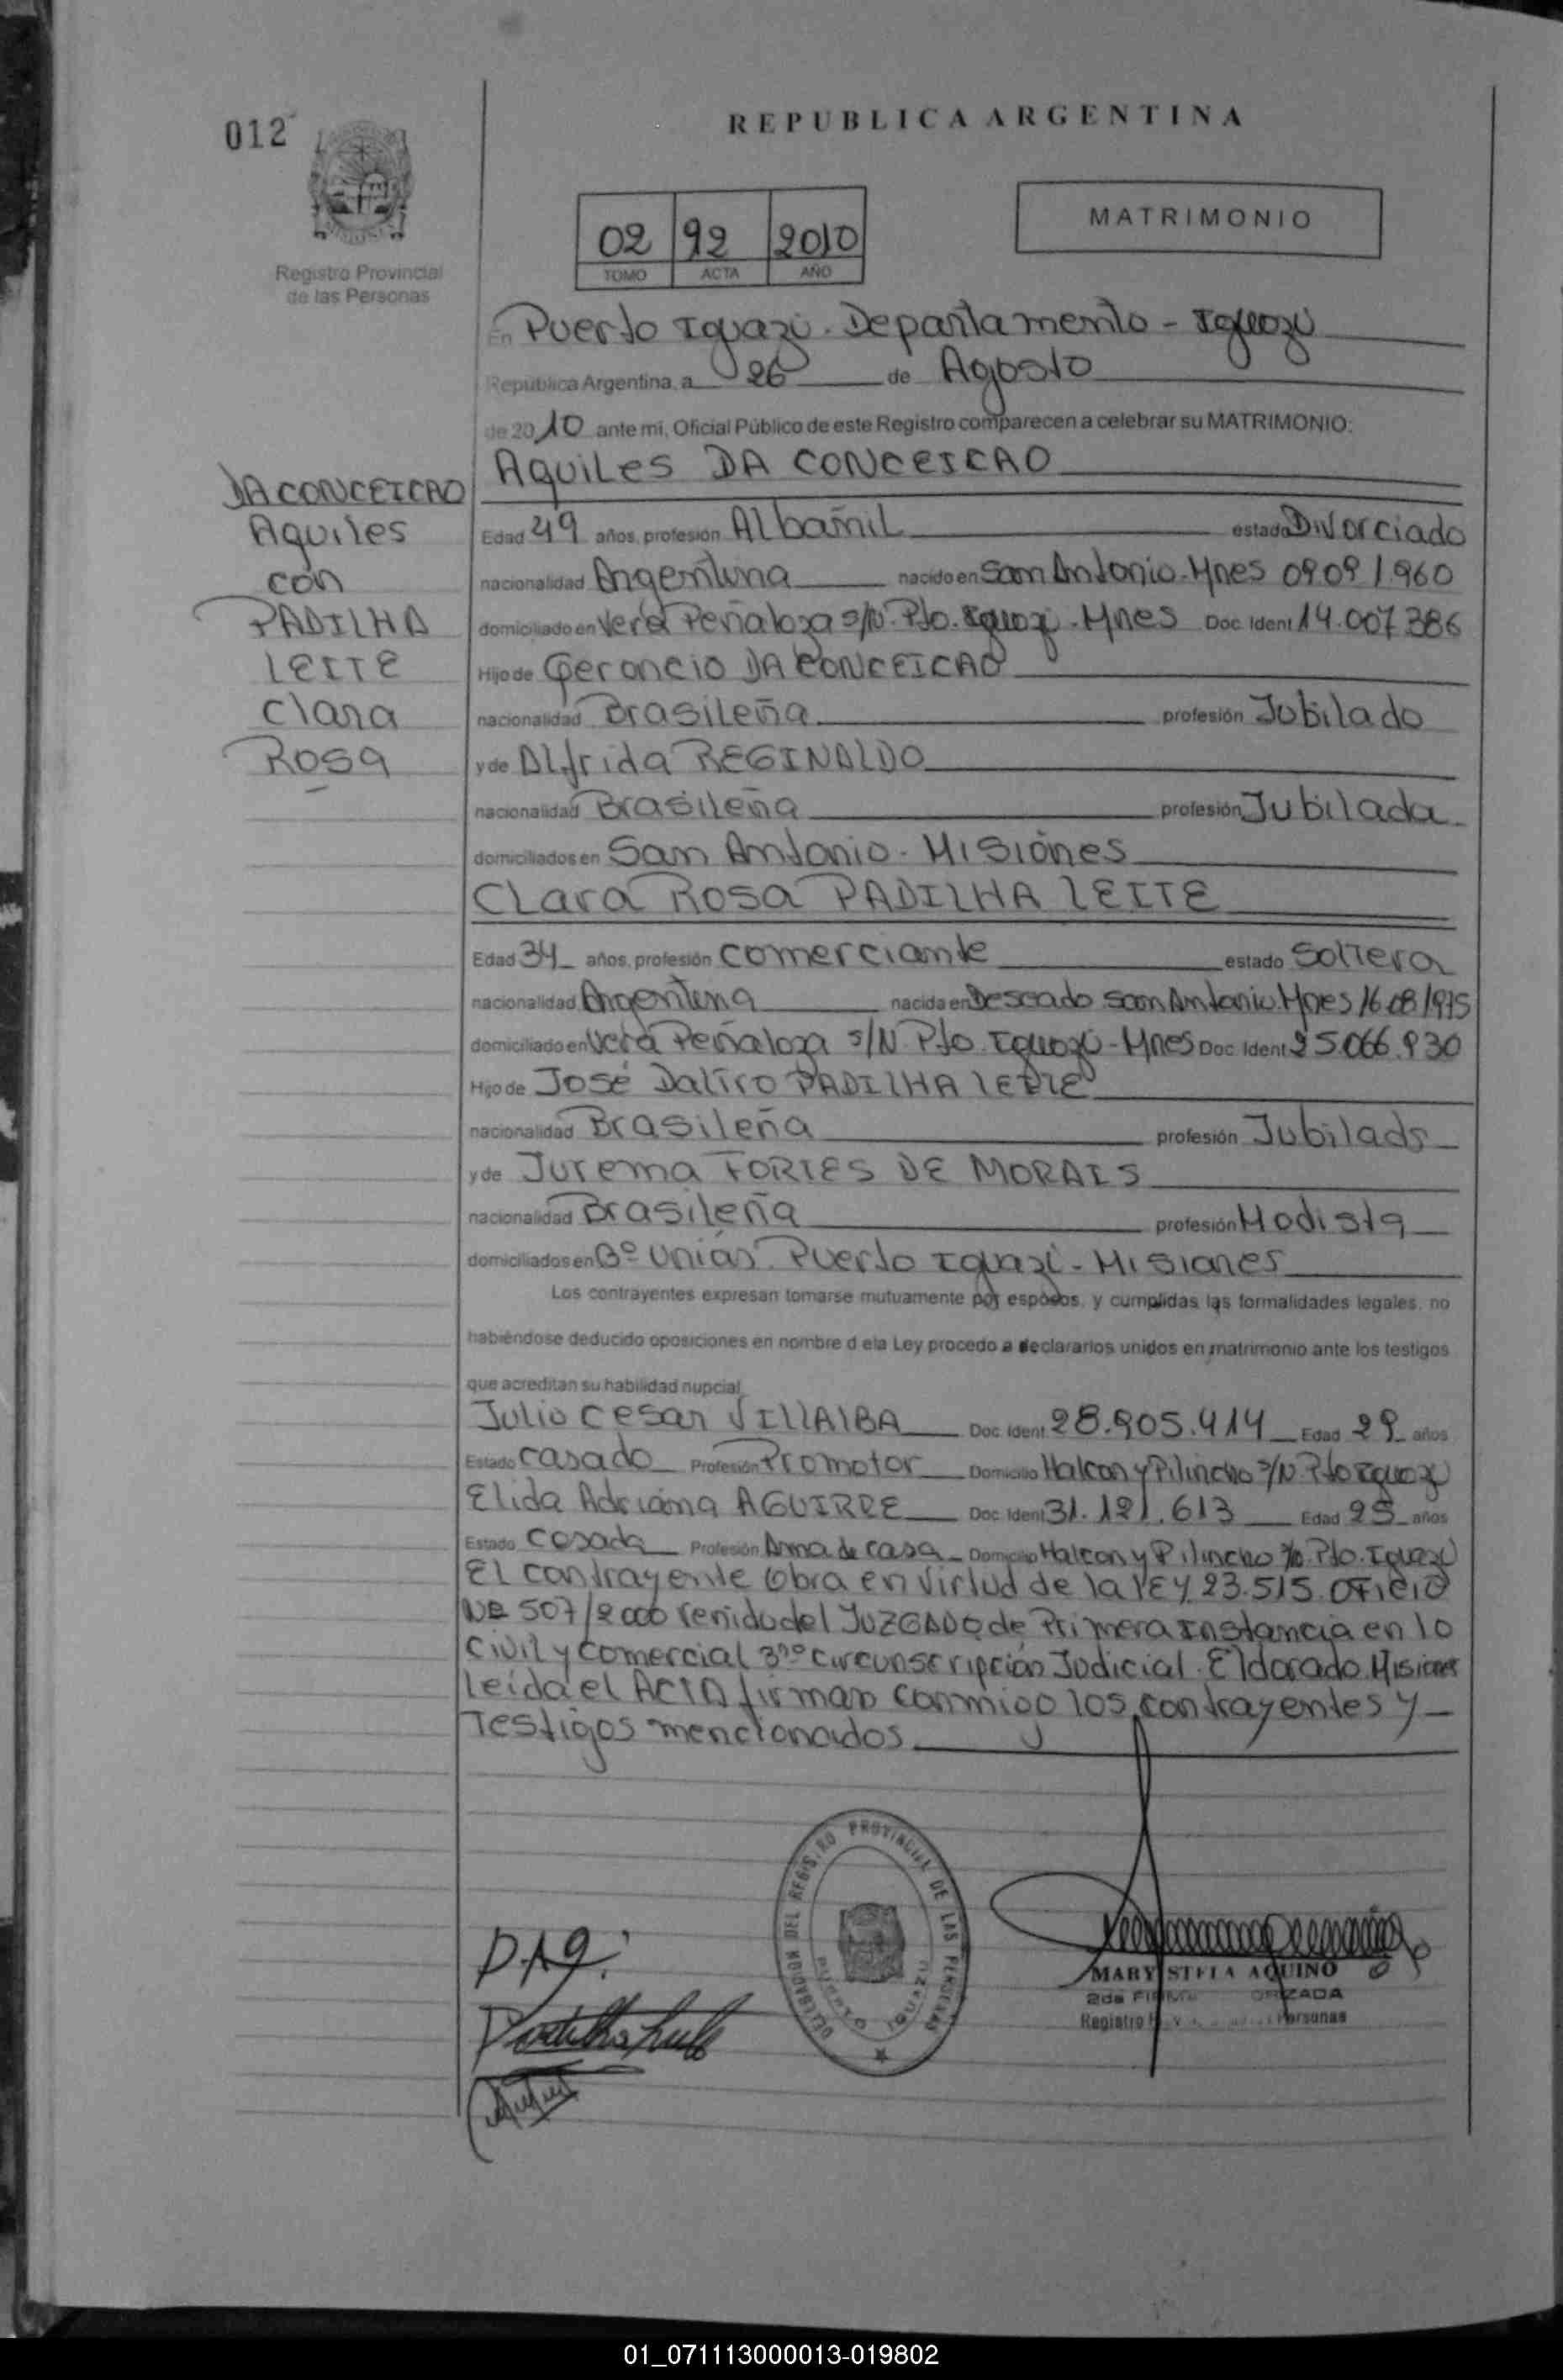 012
REPUBLICA ARGENTINA
02 92 2010
TOMO ACTA AÑO
MATRIMONIO
Registro Provincial
de las Personas
En Puerto Iguazú. Departamento - Iguazú
República Argentina, a 26 de Agosto
de 2010 ante mi, Oficial Público de este Registro comparecen a celebrar su MATRIMONIO:
Aquiles DA CONCEICAO
DA CONCEICAO
Aquiles
con
PADILHA
LEITE
Clara
Rosa
Edad 49 años, profesión Albañil estado Divorciado
nacionalidad Argentina nacido en San Antonio-Mnes 09 09 1.960
domiciliado en Vera Peñaloza s/N. Pto. Iguazú - Mnes Doc. Ident 14.007.386
Hijo de Geroncio DA CONCEICAO
nacionalidad Brasileña profesión Jubilado
y de Alfrida REGINALDO
nacionalidad Brasileña profesión Jubilada
domiciliados en San Antonio - Misiones
Clara Rosa PADILHA LEITE
Edad 34 años, profesión comerciante estado Soltera
nacionalidad Argentina nacida en Deseado San Antonio. Mnes 16 08 1975
domiciliado en Vera Peñaloza s/N Pto. Iguazú - Mnes Doc. Ident 25.066.930
Hijo de José Daltro PADILHA LEITE
nacionalidad Brasileña profesión Jubilado
y de Jurema FORTES DE MORAIS
nacionalidad Brasileña profesión Modista
domiciliados en Bº Unión. Puerto Iguazú - Misiones
Los contrayentes expresan tomarse mutuamente por esposos, y cumplidas las formalidades legales, no
habiéndose deducido oposiciones en nombre d ela Ley procedo a declararlos unidos en matrimonio ante los testigos
que acreditan su habilidad nupcial
Julio Cesar VILLALBA Doc. Ident 28.905.414 Edad 29 años
Estado casado Profesión Promotor Domicilio Halcon y Pilincho s/N Pto Iguazú
Elida Adriana AGUIRRE Doc. Ident 31.121.613 Edad 25 años
Estado Casada Profesión Ama de casa Domicilio Halcon y Pilincho s/n. Pto. Iguazú
El contrayente Obra en Virtud de la LEY 23.515. OFICIO
Nº 507/2000 venido del JUZGADO de Primera Instancia en lo
Civil y Comercial 3ra Circunscripción Judicial. Eldorado. Misiones
leída el ACTA firman conmigo los contrayentes y
Testigos mencionados
DELEGACION DEL REGISTRO PROVINCIAL DE LAS PERSONAS
PUERTO IGUAZU
MARY STELA AQUINO
2da
Registro Personas
01_071113000013-019802